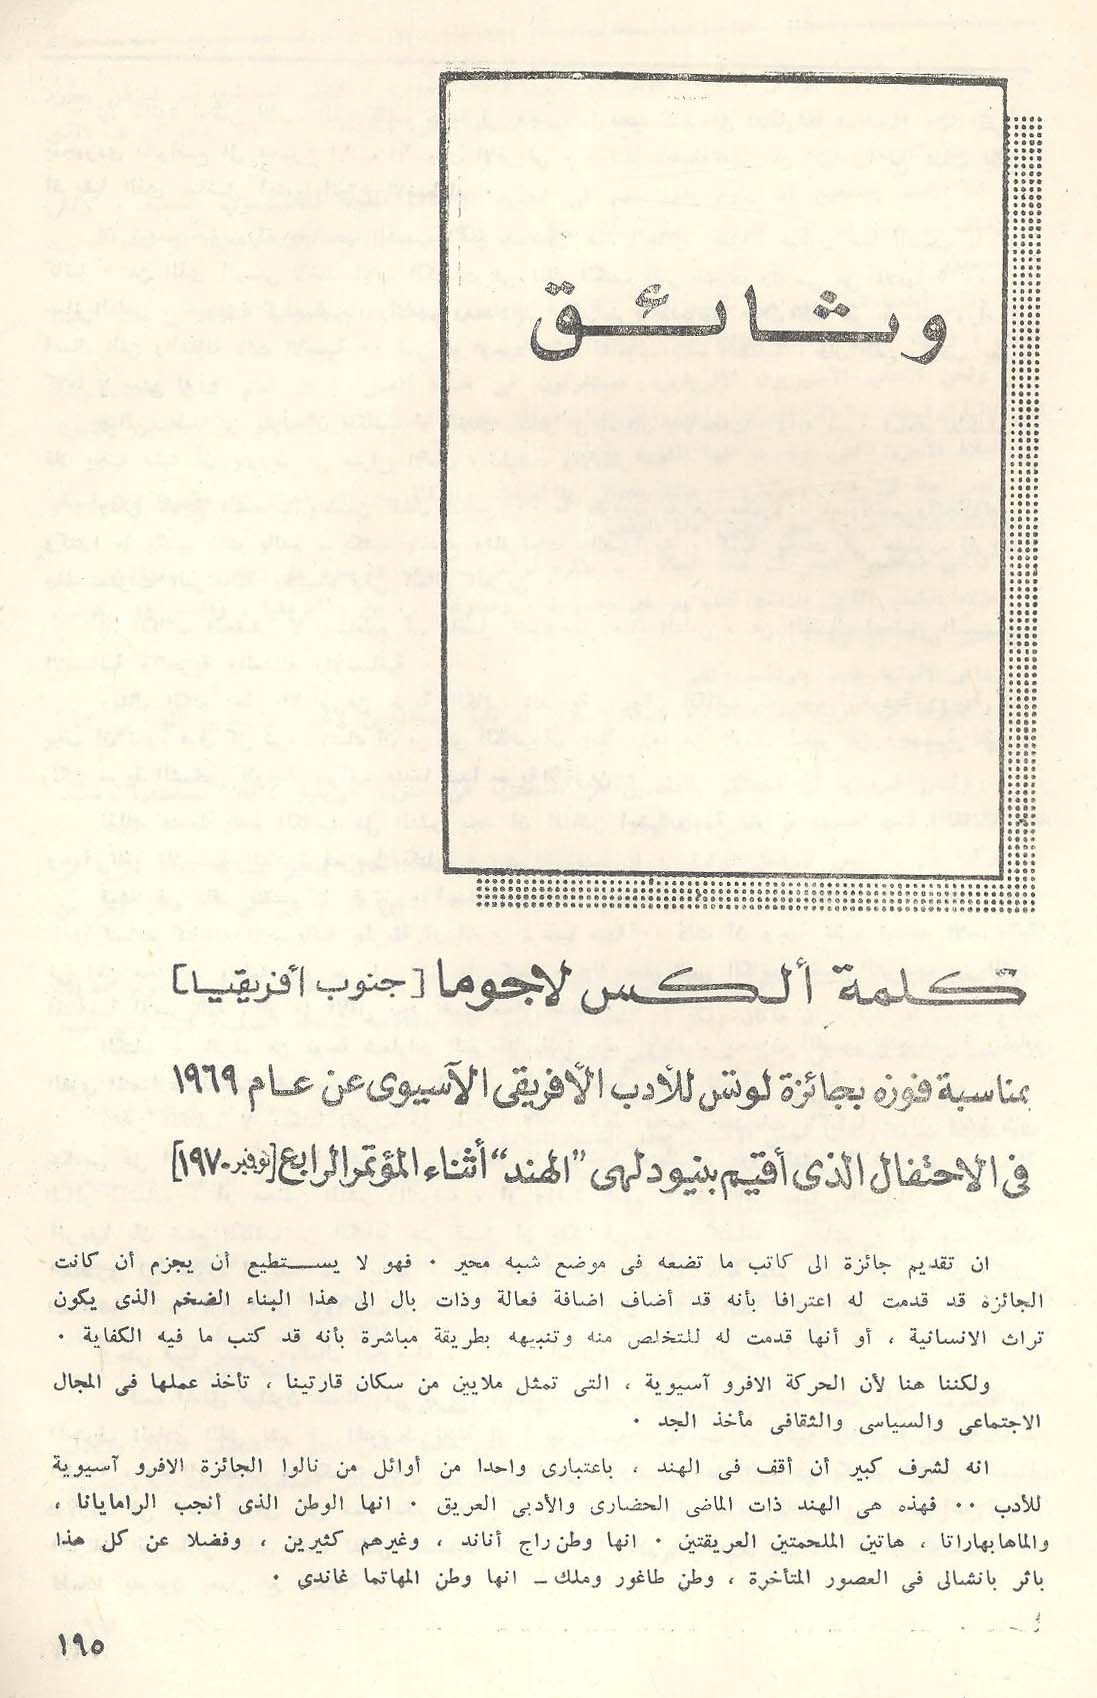 وثائق
كلمة ألكس لاجوما [جنوب أفريقيا]
بمناسبة فوزه بجائزة لوتس للأدب الأفريقى الآسيوى عن عام ١٩٦٩
فى الاحتفال الذى أقيم بنيودلهى "الهند" أثناء المؤتمر الرابع [نوفمبر ١٩٧٠]
ان تقديم جائزة الى كاتب ما تضعه فى موضع شبه محير ٠ فهو لا يستطيع أن يجزم أن كانت
الجائزة قد قدمت له اعترافا بأنه قد أضاف اضافة فعالة وذات بال الى هذا البناء الضخم الذى يكون
تراث الانسانية ، أو أنها قدمت له للتخلص منه وتنبيهه بطريقة مباشرة بأنه قد كتب ما فيه الكفاية ٠
ولكننا هنا لأن الحركة الافرو آسيوية ، التى تمثل ملايين من سكان قارتينا ، تأخذ عملها فى المجال
الاجتماعى والسياسى والثقافى مأخذ الجد ٠
انه لشرف كبير أن أقف فى الهند ، باعتبارى واحدا من أوائل من نالوا الجائزة الافرو آسيوية
للأدب ٠٠ فهذه هى الهند ذات الماضى الحضارى والأدبى العريق ٠ انها الوطن الذى أنجب الرامايانا ،
والماهابهاراتا ، هاتين الملحمتين العريقتين ٠ انها وطن راج أناند ، وغيرهم كثيرين ، وفضلا عن كل هذا
باثر بانشالى فى العصور المتأخرة ، وطن طاغور وملك ــ انها وطن المهاتما غاندى ٠
١٩٥